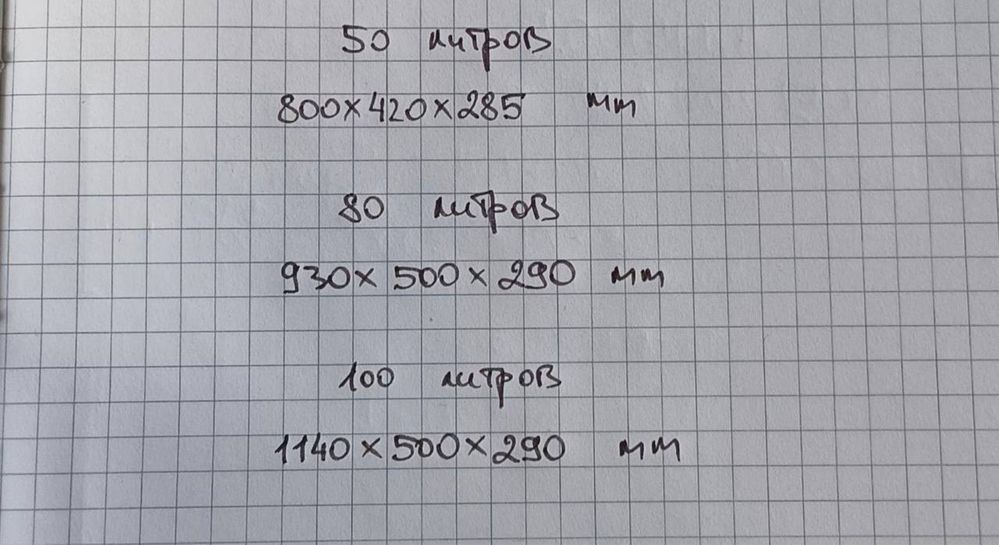 50 литров
800×420×285 мм
80 литров
930×500×290 мм
100 литров
1140×500×290 мм